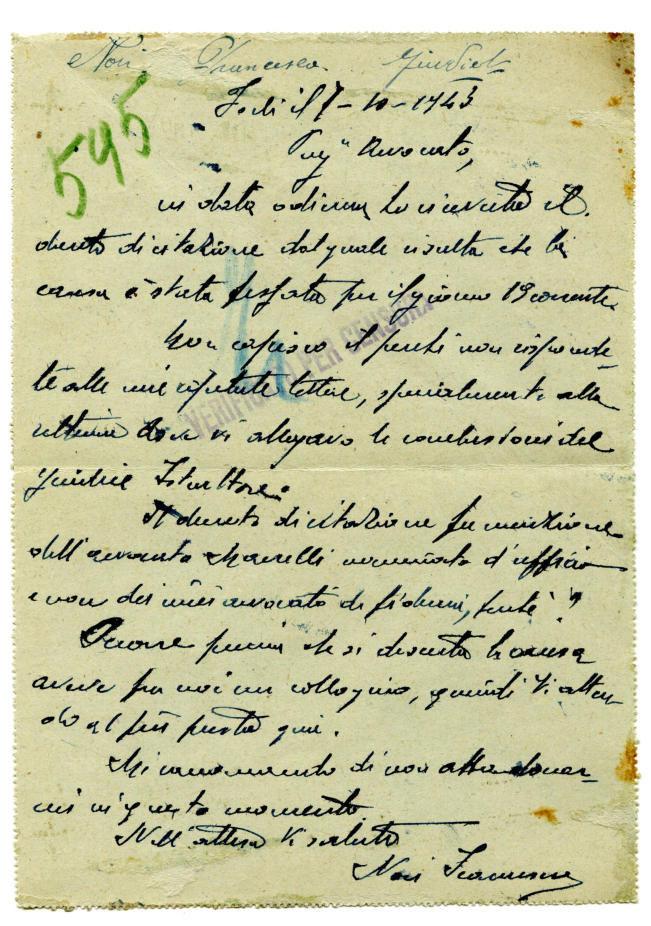 Nori Francesco
595
lì 7-10-1943
Avvocato,
in data odierna ho ricevuto il
decreto di citazione dal quale risulta che la
causa è stata per il giorno 19 corrente.
Non capisco il perché non risponde-
te alle mie ripetute lettere, specialmente alla
ultima dove vi allegavo le conclusioni del
giudice Istruttore.
VERIFICATO PER CENSURA
Il decreto di citazione fa menzione
dell'avvocato nominato d'ufficio
e non dei miei avvocati di fiducia, perché?
Occorre prima che si discuta la causa
avere fra noi un colloquio, quindi Vi atten-
do al più presto qui.
Mi raccomando di non abbandonar-
mi in questo momento.
Nell'attesa Vi saluto
Nori Francesco